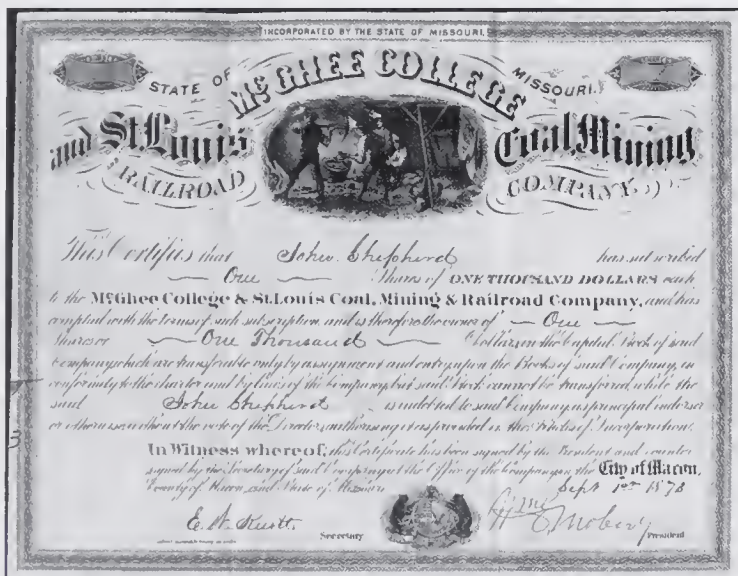 INCORPORATED BY THE STATE OF MISSOURI.
STATE OF McGHEE COLLEGE MISSOURI.
and St. Louis Coal, Mining
RAILROAD COMPANY
This Certifies that John Shepherd has subscribed
One Shares of ONE THOUSAND DOLLARS each
to the McGhee College & St. Louis Coal, Mining & Railroad Company, and has
complied with the terms of such subscription and is therefore the owner of One
Shares or One Thousand Dollars in the Capital Stock of said
Company, which are transferable only by assignment and entry upon the Books of said Company, in
conformity to the charter and by laws of the Company, but said Stock cannot be transferred, while the
said John Shepherd is indebted to said Company as principal indorser
or otherwise without the vote of the Directors authorizing it as provided in the Articles of Incorporation.
In Witness whereof, this Certificate has been signed by the President and counter
signed by the Secretary of said Company at the Office of the Company in the City of Macon,
County of Macon, and State of Missouri Sept 1st 1873
Secretary
President